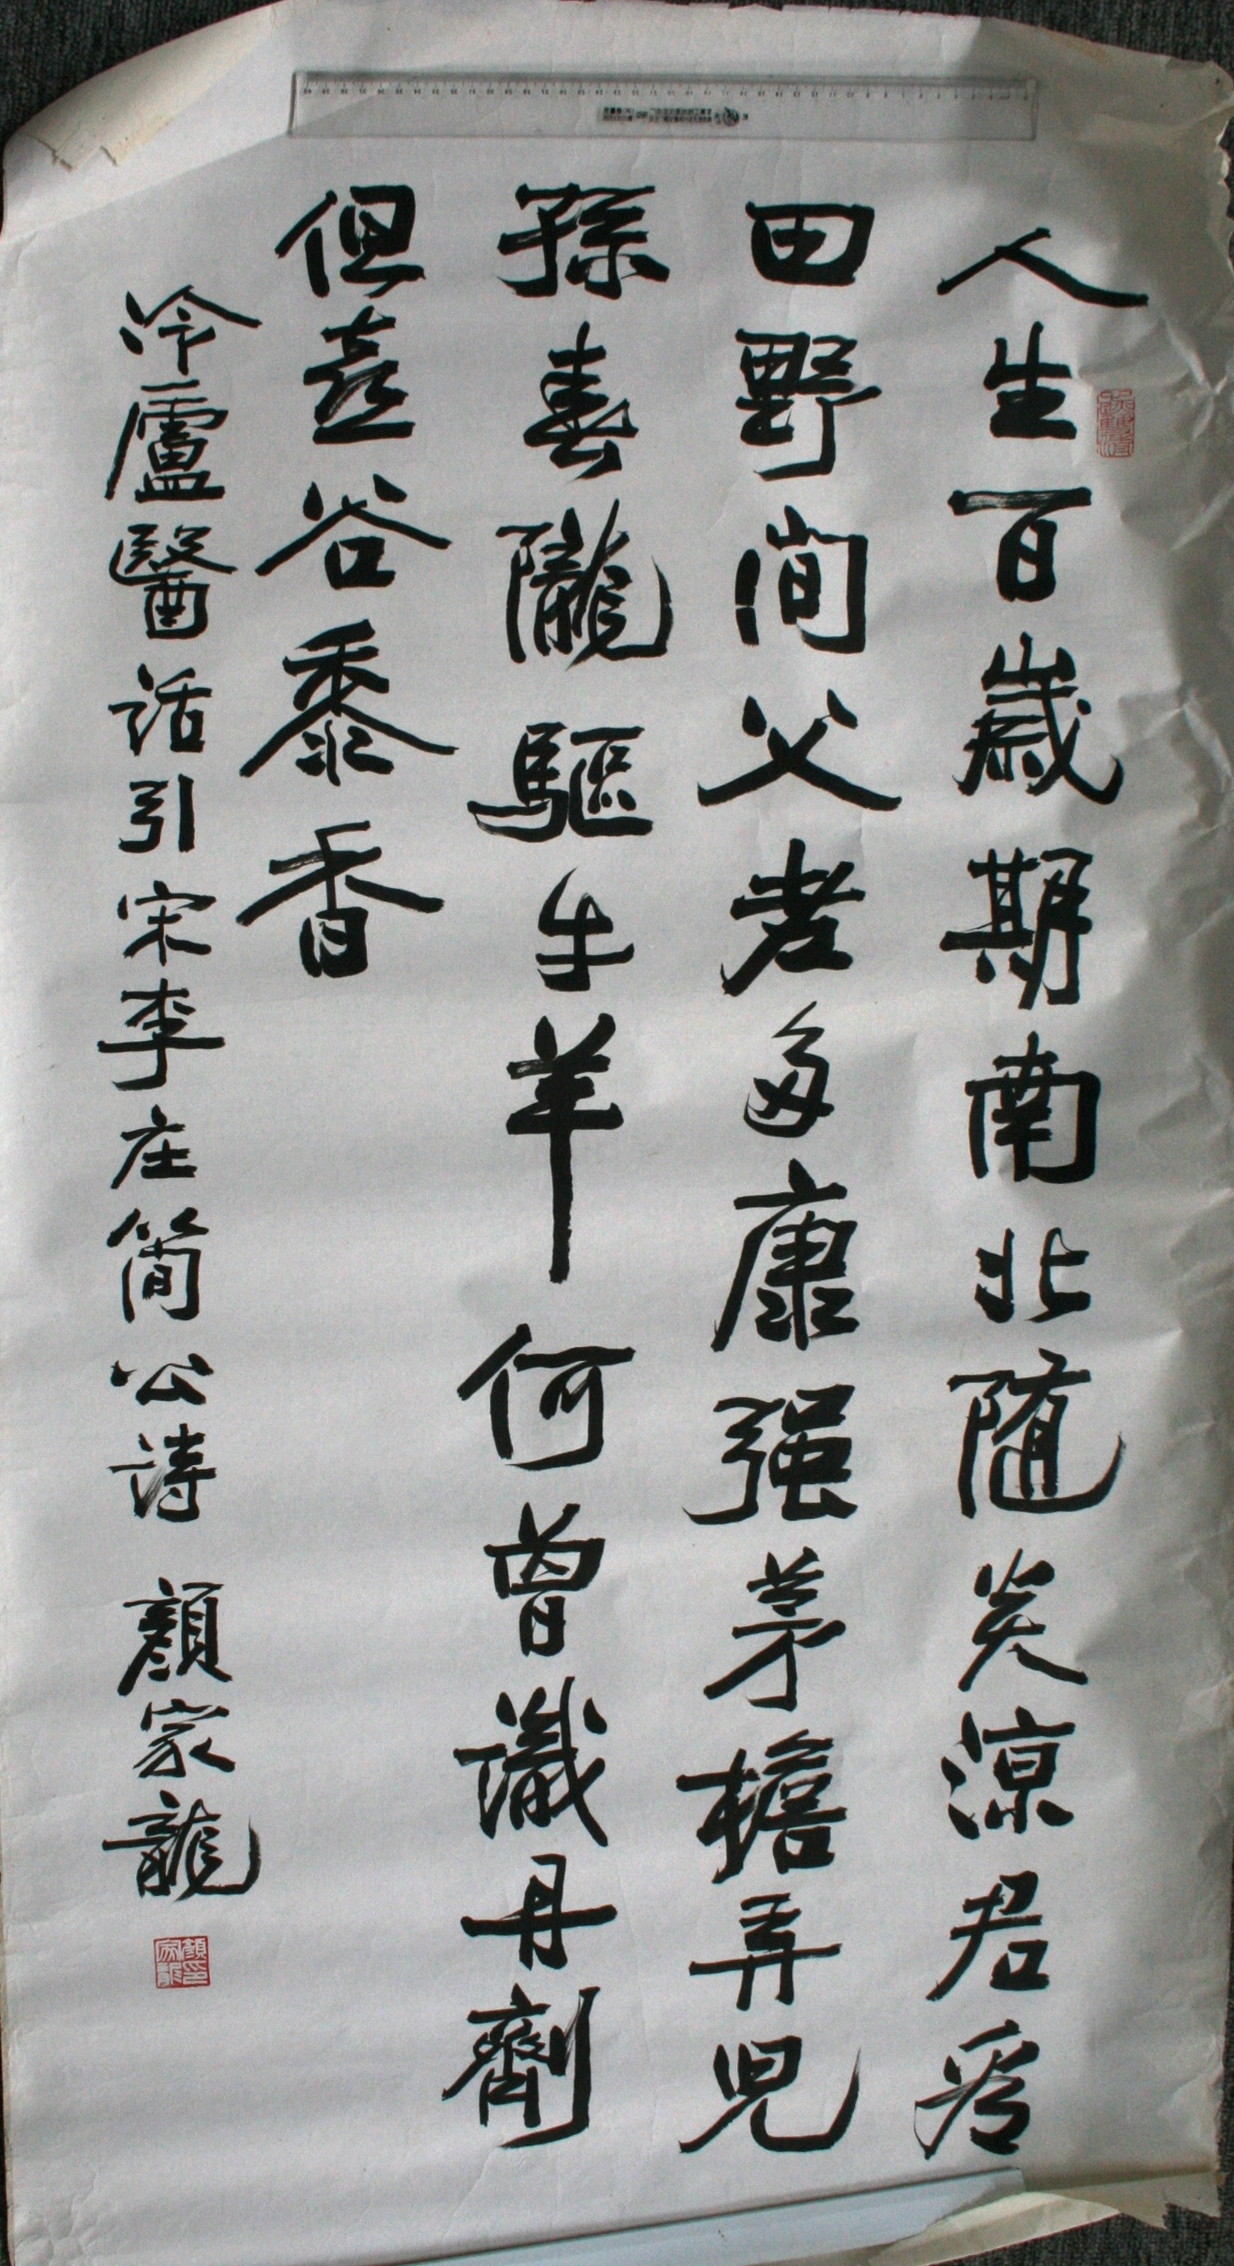 人生百歲期南北随炎涼君看
田野间父老多康强茅檐弄兒
孫春隴驅牛羊何曾識丹劑
但喜谷黍香
冷廬醫話引宋李庄简公詩 顏家龍
顏家龍印